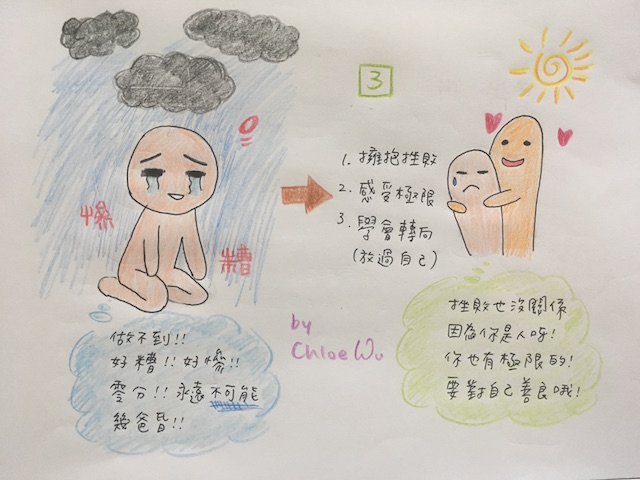 0
慘
糟
做不到!!
好糟!!好慘!!
零分!!永遠不可能
幾爸皆!!
3
1. 擁抱挫敗
2. 感受極限
3. 學會轉向
(放過自己)
by
Chloe Wu
挫敗也沒關係
因為你是人呀!
你也有極限的!
要對自己善良哦!